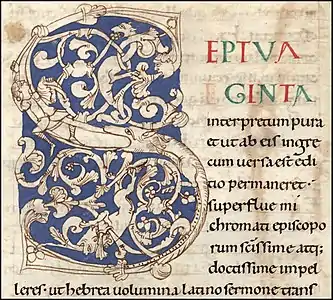 SEPTUA
GINTA
interpretum pura
et ut ab eis in gre
cum versa est edi
tio permaneret·
superflue mi
chromati episcopo
rum sctissime atq;
doctissime inpel
leres· ut hebrea volumina latino sermone trans